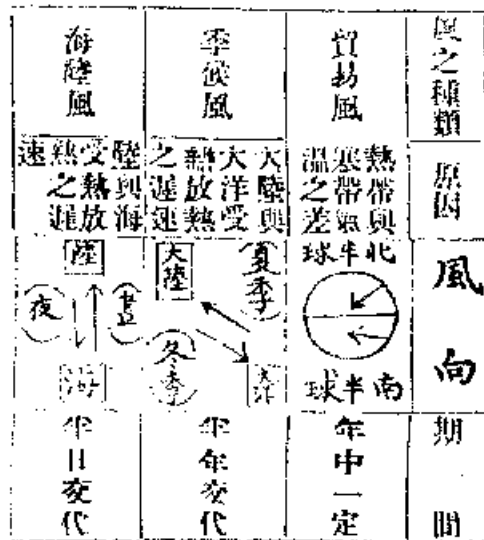 風之種類
原因
風向
期間
貿易風
熱帶與
寒帶氣
溫之差
北半球
南半球
年中一定
季候風
大陸與
大洋受
熱放熱
之遲速
夏季
大陸
大洋
冬季
半年交代
海陸風
陸與海
受熱放
熱之遲
速
陸
晝
夜
海
半日交代